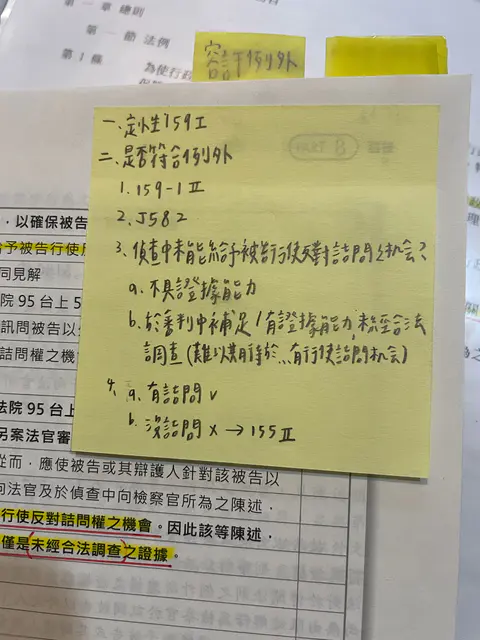 第一章 總則
第一節 法例
第1條
為使行政
容許例外
一、定性159I
二、是否符合例外
1. 159-1 II
2. J582
3. 偵查中未能給予被告行使反對詰問之机会?
a. 不具證據能力
b. 於審判中補足/有證據能力,未經合法
調查(難以期待於…有行使詰問机会)
4. a. 有詰問 v
b. 沒詰問 x → 155 II
,以確保被告
給予被告行使反
同見解
院 95 台上 5
訊問被告以
詰問權之機
法院 95 台上
另案法官審
從而,應使被告或其辯護人針對該被告以
向法官及於偵查中向檢察官所為之陳述,
行使反對詰問權之機會。因此該等陳述,
僅是未經合法調查之證據。